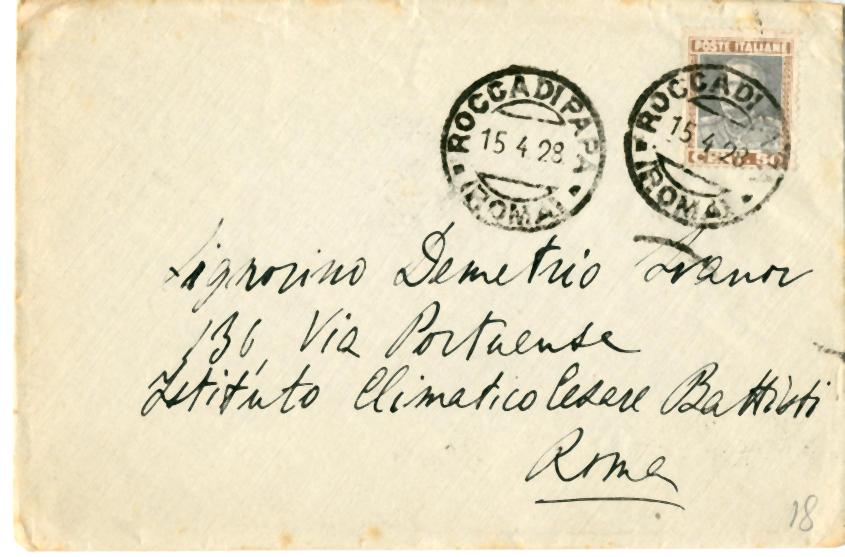 POSTE ITALIANE
CENT. 50
ROCCA DI PAPA
15 4.28.
(ROMA)
ROCCA DI PAPA
15 4.28
(ROMA)
Signorino Demetrio Ivanov
136, Via Portuense
Istituto Climatico Cesare Battisti
Roma
18